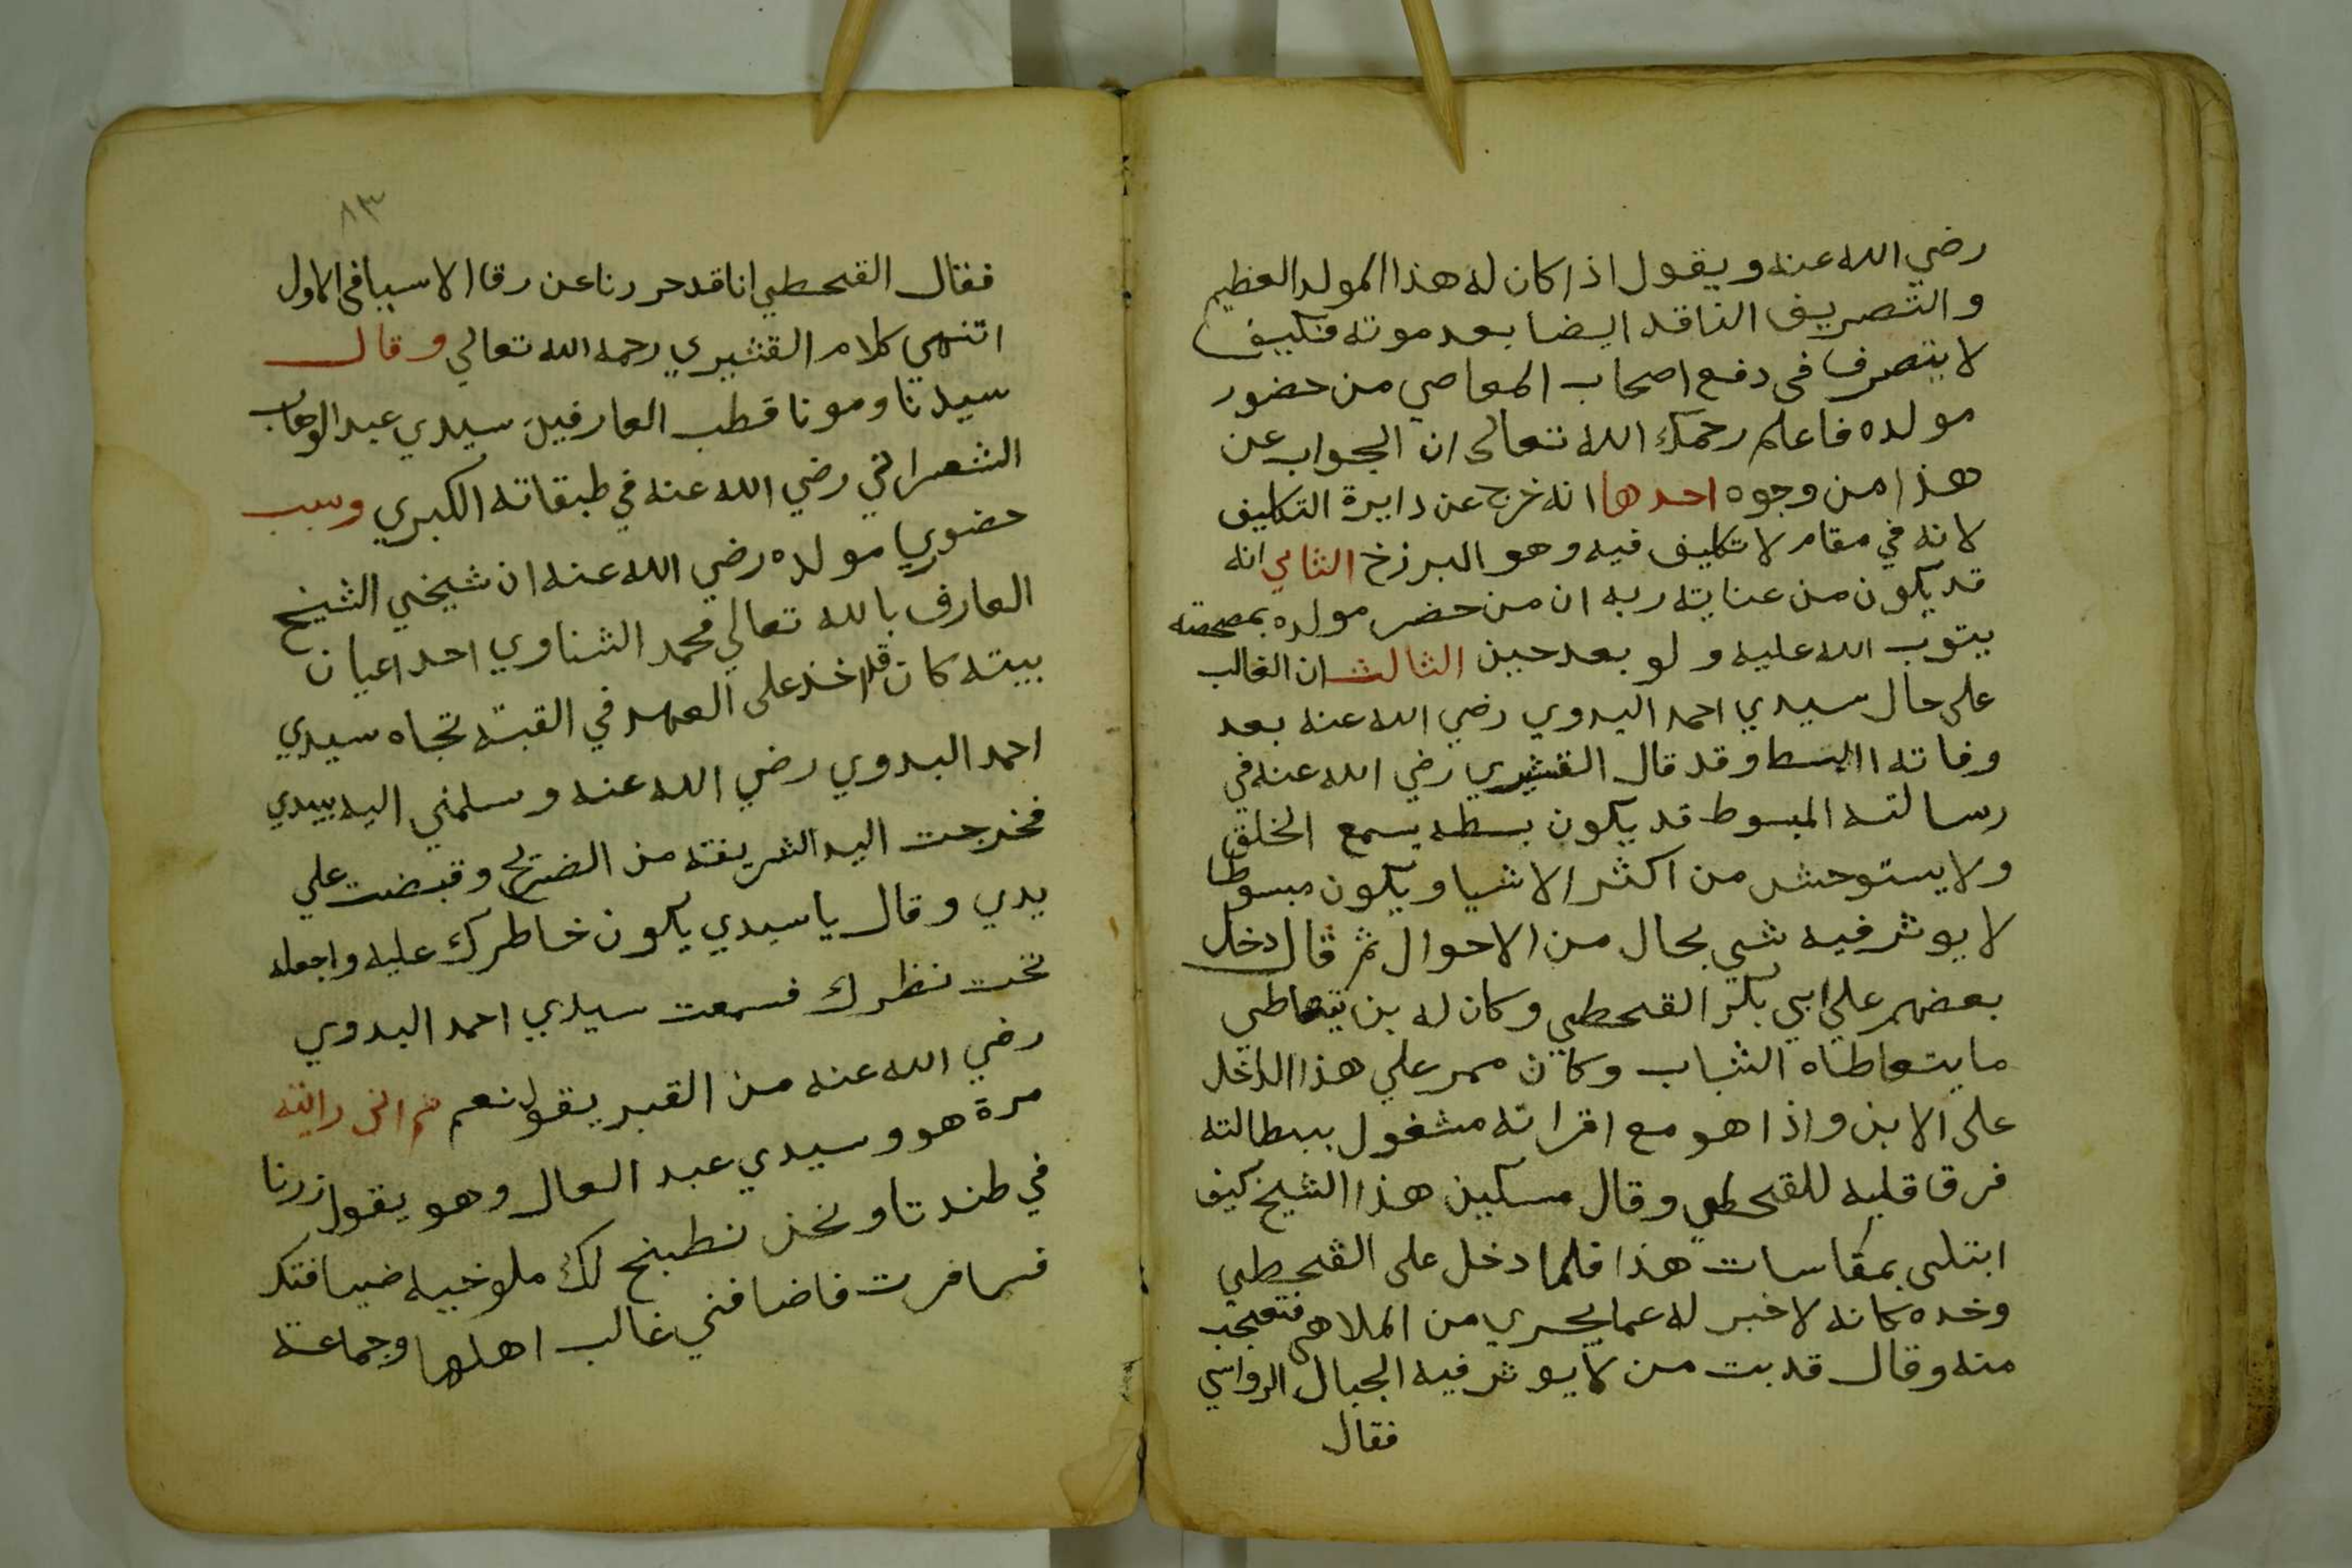 رضي الله عنه ويقول اذا كان له هذا المولد العظيم
والتصريف النافد ايضا بعد موته فكيف
لا يتصرف فى دفع اصحاب المعاصي من حضور
مولده فاعلم رحمك الله تعالى ان الجواب عن
هذا من وجوه احدها انه خرج عن دايرة التكليف
لانه في مقام لا تكليف فيه وهو البرزخ الثاني انه
قد يكون من عناية ربه ان من حضر مولده بمعصيته
يتوب الله عليه ولو بعد حين الثالث ان الغالب
على حال سيدي احمد البدوي رضي الله عنه بعد
وفاته البسط وقد قال القشيري رضي الله عنه في
رسالته المبسوط قد يكون بسطه يسمع الخلق
ولا يستوحش من اكثر الاشيا ويكون مبسوطا
لا يوثر فيه شي بحال من الاحوال ثم قال دخل
بعضهم علي ابي بكر القحطبي وكان له بن يتعاطي
ما يتعاطاه الشباب وكان ممر علي هذا الداخل
على الابن واذا هو مع اقرانه مشغول ببطالته
فرق قلبه للقحطبي وقال مسكين هذا الشيخ كيف
ابتلى بمقاسات هذا فلما دخل على القحطبي
وخده كانه لا خبر له عما يجري من الملاهي فتعجب
منه وقال قد بت من لا يوثر فيه الجبال الرواسي
فقال
٨٣
فقال القحطبي انا قد حررنا عن رق الاسيا فى الاول
انتهى كلام القشيري رحمه الله تعالي وقال
سيدنا ومونا قطب العارفين سيدي عبد الوهاب
الشعراني رضي الله عنه في طبقاته الكبري وسبب
حضوري مولده رضي الله عنه ان شيخي الشيخ
العارف بالله تعالي محمد الشناوي احد اعيان
بيته كان قد اخذ على العهد في القبة تجاه سيدي
احمد البدوي رضي الله عنه وسلمني اليه بيدي
فخرجت اليد الشريفة من الضريح وقبضت علي
يدي وقال يا سيدي يكون خاطرك عليه واجعله
تحت نظرك فسمعت سيدي احمد البدوي
رضي الله عنه من القبر يقول نعم ثم انى رايته
مرة هو وسيدي عبد العال وهو يقول زرنا
في طندتا ونحن نطبخ لك ملوخيه ضيافتك
فسافرت فاضافني غالب اهلها وجماعة